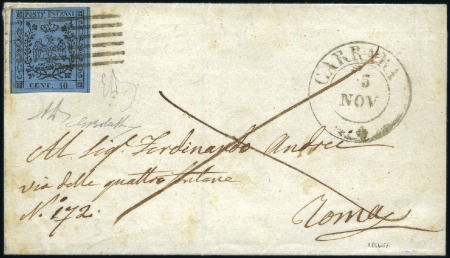 POSTE ESTENSI
CENT. 40
CARRARA
5
NOV
Al Sig.r Ferdinando Andrei
via delle quattro fontane
N.o 172.
Roma